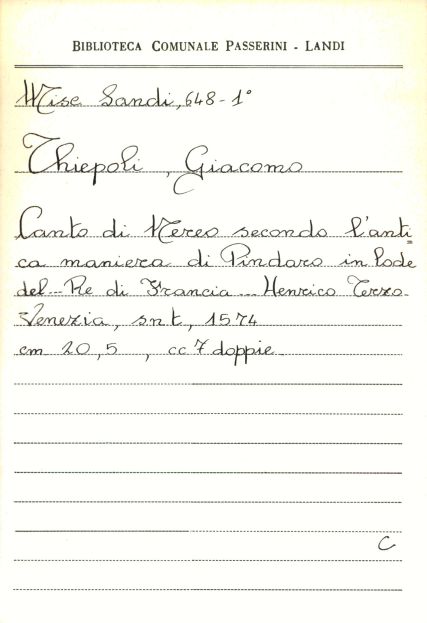 BIBLIOTECA COMUNALE PASSERINI - LANDI
Misc Landi, 648-1°
Thiepoli, Giacomo
Canto di Nereo secondo l'anti=
ca maniera di Pindaro in lode
del Re di Francia Henrico Terzo
Venezia, snt, 1574
cm 20,5, cc 7 doppie
C